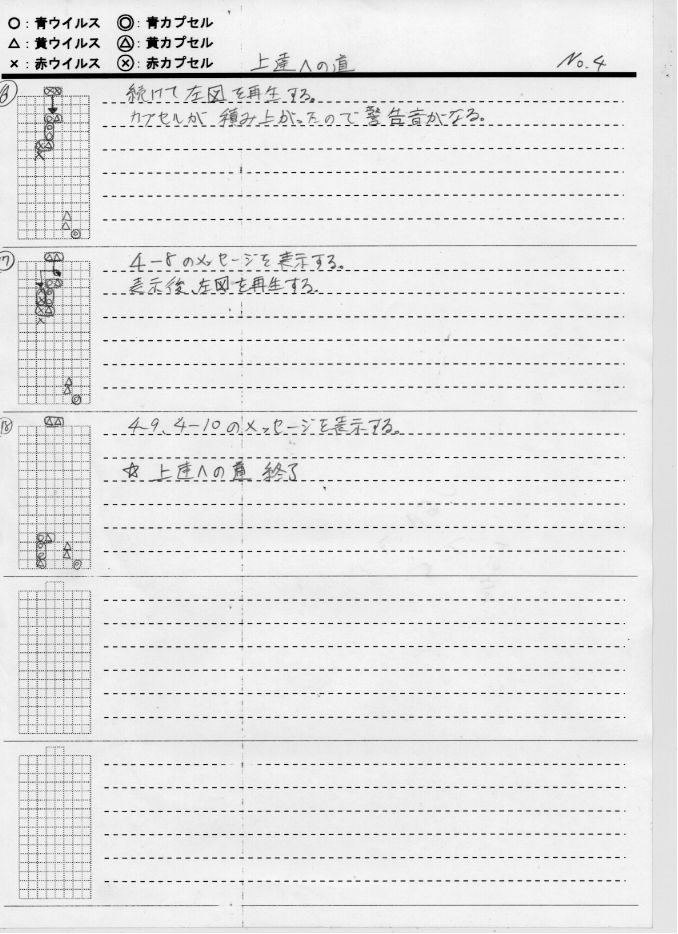 ○：青ウイルス ◎：青カプセル
△：黄ウイルス Ⓐ：黄カプセル
×：赤ウイルス ⓧ：赤カプセル
上達への道
No.4
続けて左図を再生する。
カプセルが積み上がったので警告音がなる。
17
4-8のメッセージを表示する。
表示後、左図を再生する。
18
4-9、4-10のメッセージを表示する。
☆ 上達への道 終了